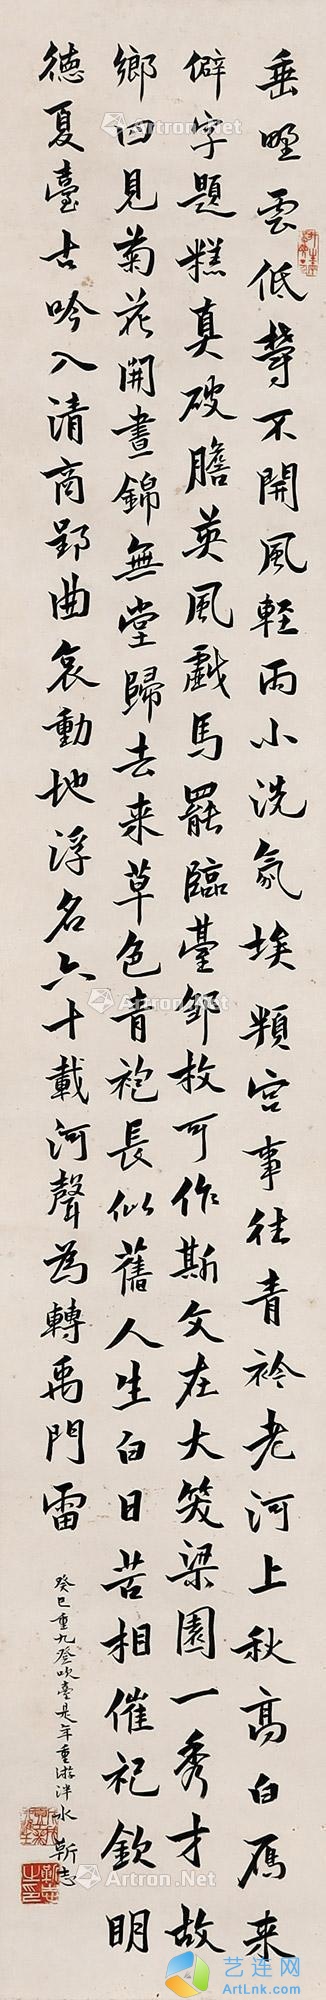 垂野雲低鬱不開風輕雨小洗氛埃頖宮事往青衿老河上秋高白雁来
僻字題糕真破膽英風戲馬罷臨臺鄒枚可作斯文在大笑梁園一秀才故
鄉曰見菊花開晝錦無堂歸去来草色青袍長似舊人生白日苦相催祀欽明
德夏臺古吟入清商郢曲哀動地浮名六十載河聲為轉禹門雷
癸巳重九登吹臺是年重游泮水 靳志
Artron.Net
艺连网
ArtLink.CN